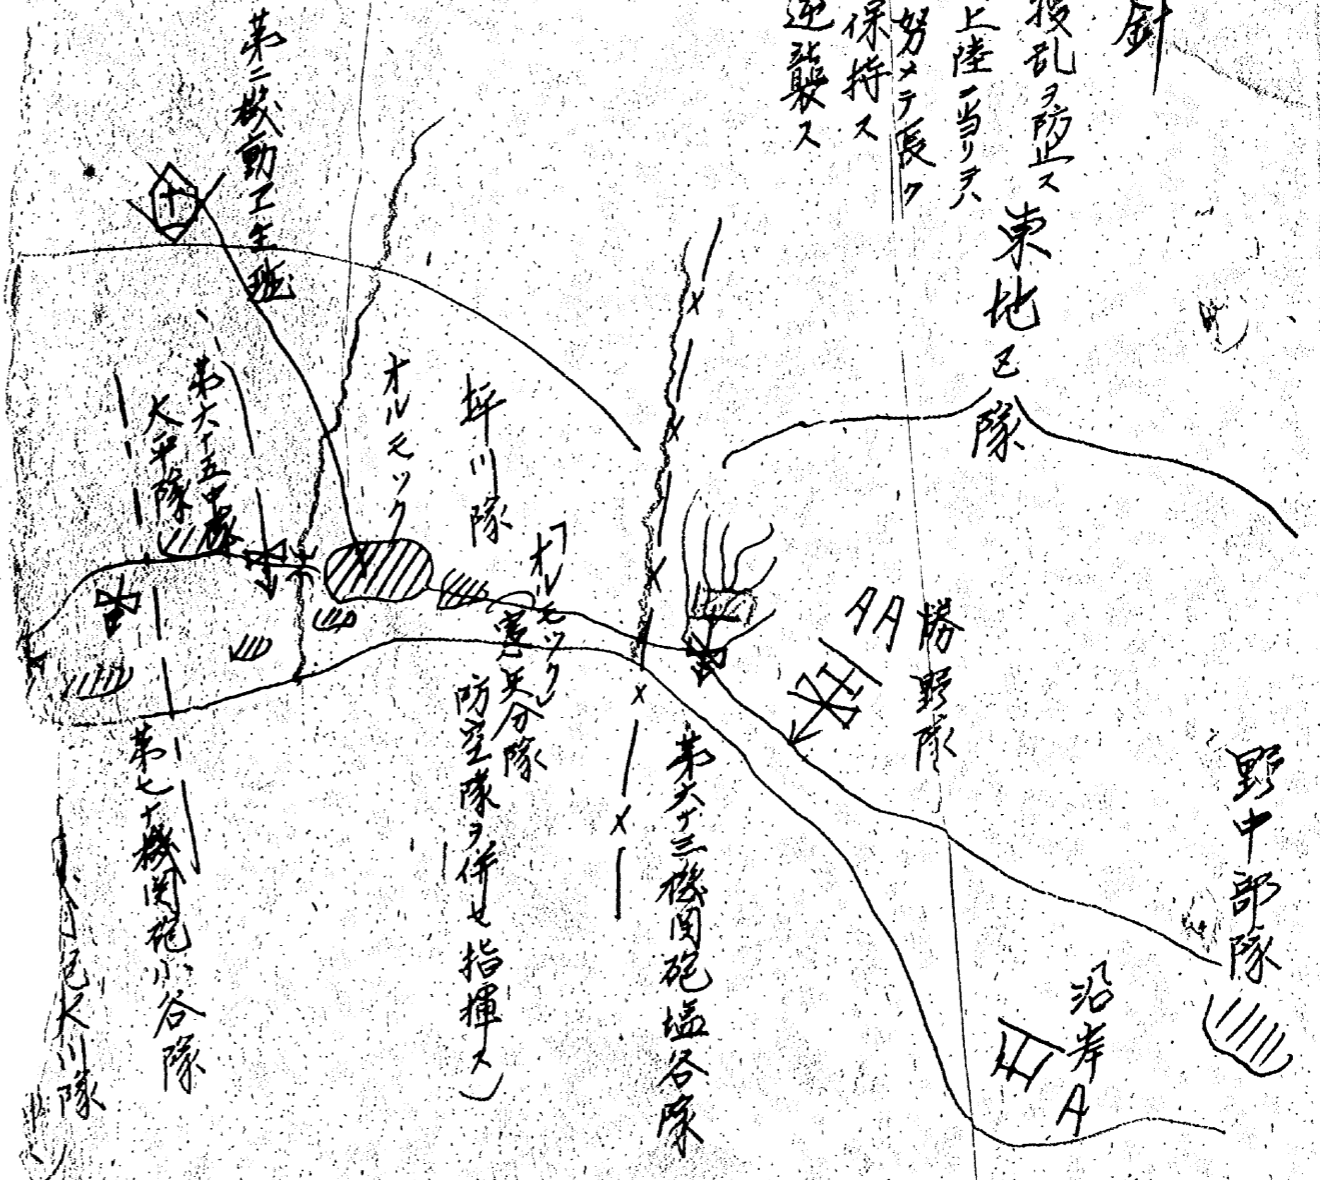 針
擾乱ヲ防止ス
上陸ニ当リテハ
努メテ長ク
保持ス
逆襲ス
東地区隊
野中部隊
沿岸A
勝野隊
AA
第六十三機関砲塩谷隊
坪川隊
「オルモック」
憲兵分隊
防空隊ヲ併セ指揮ス)
オルモック
第二機動卫生班
第六十五中隊
大平隊
第七十機関砲小谷隊
川隊